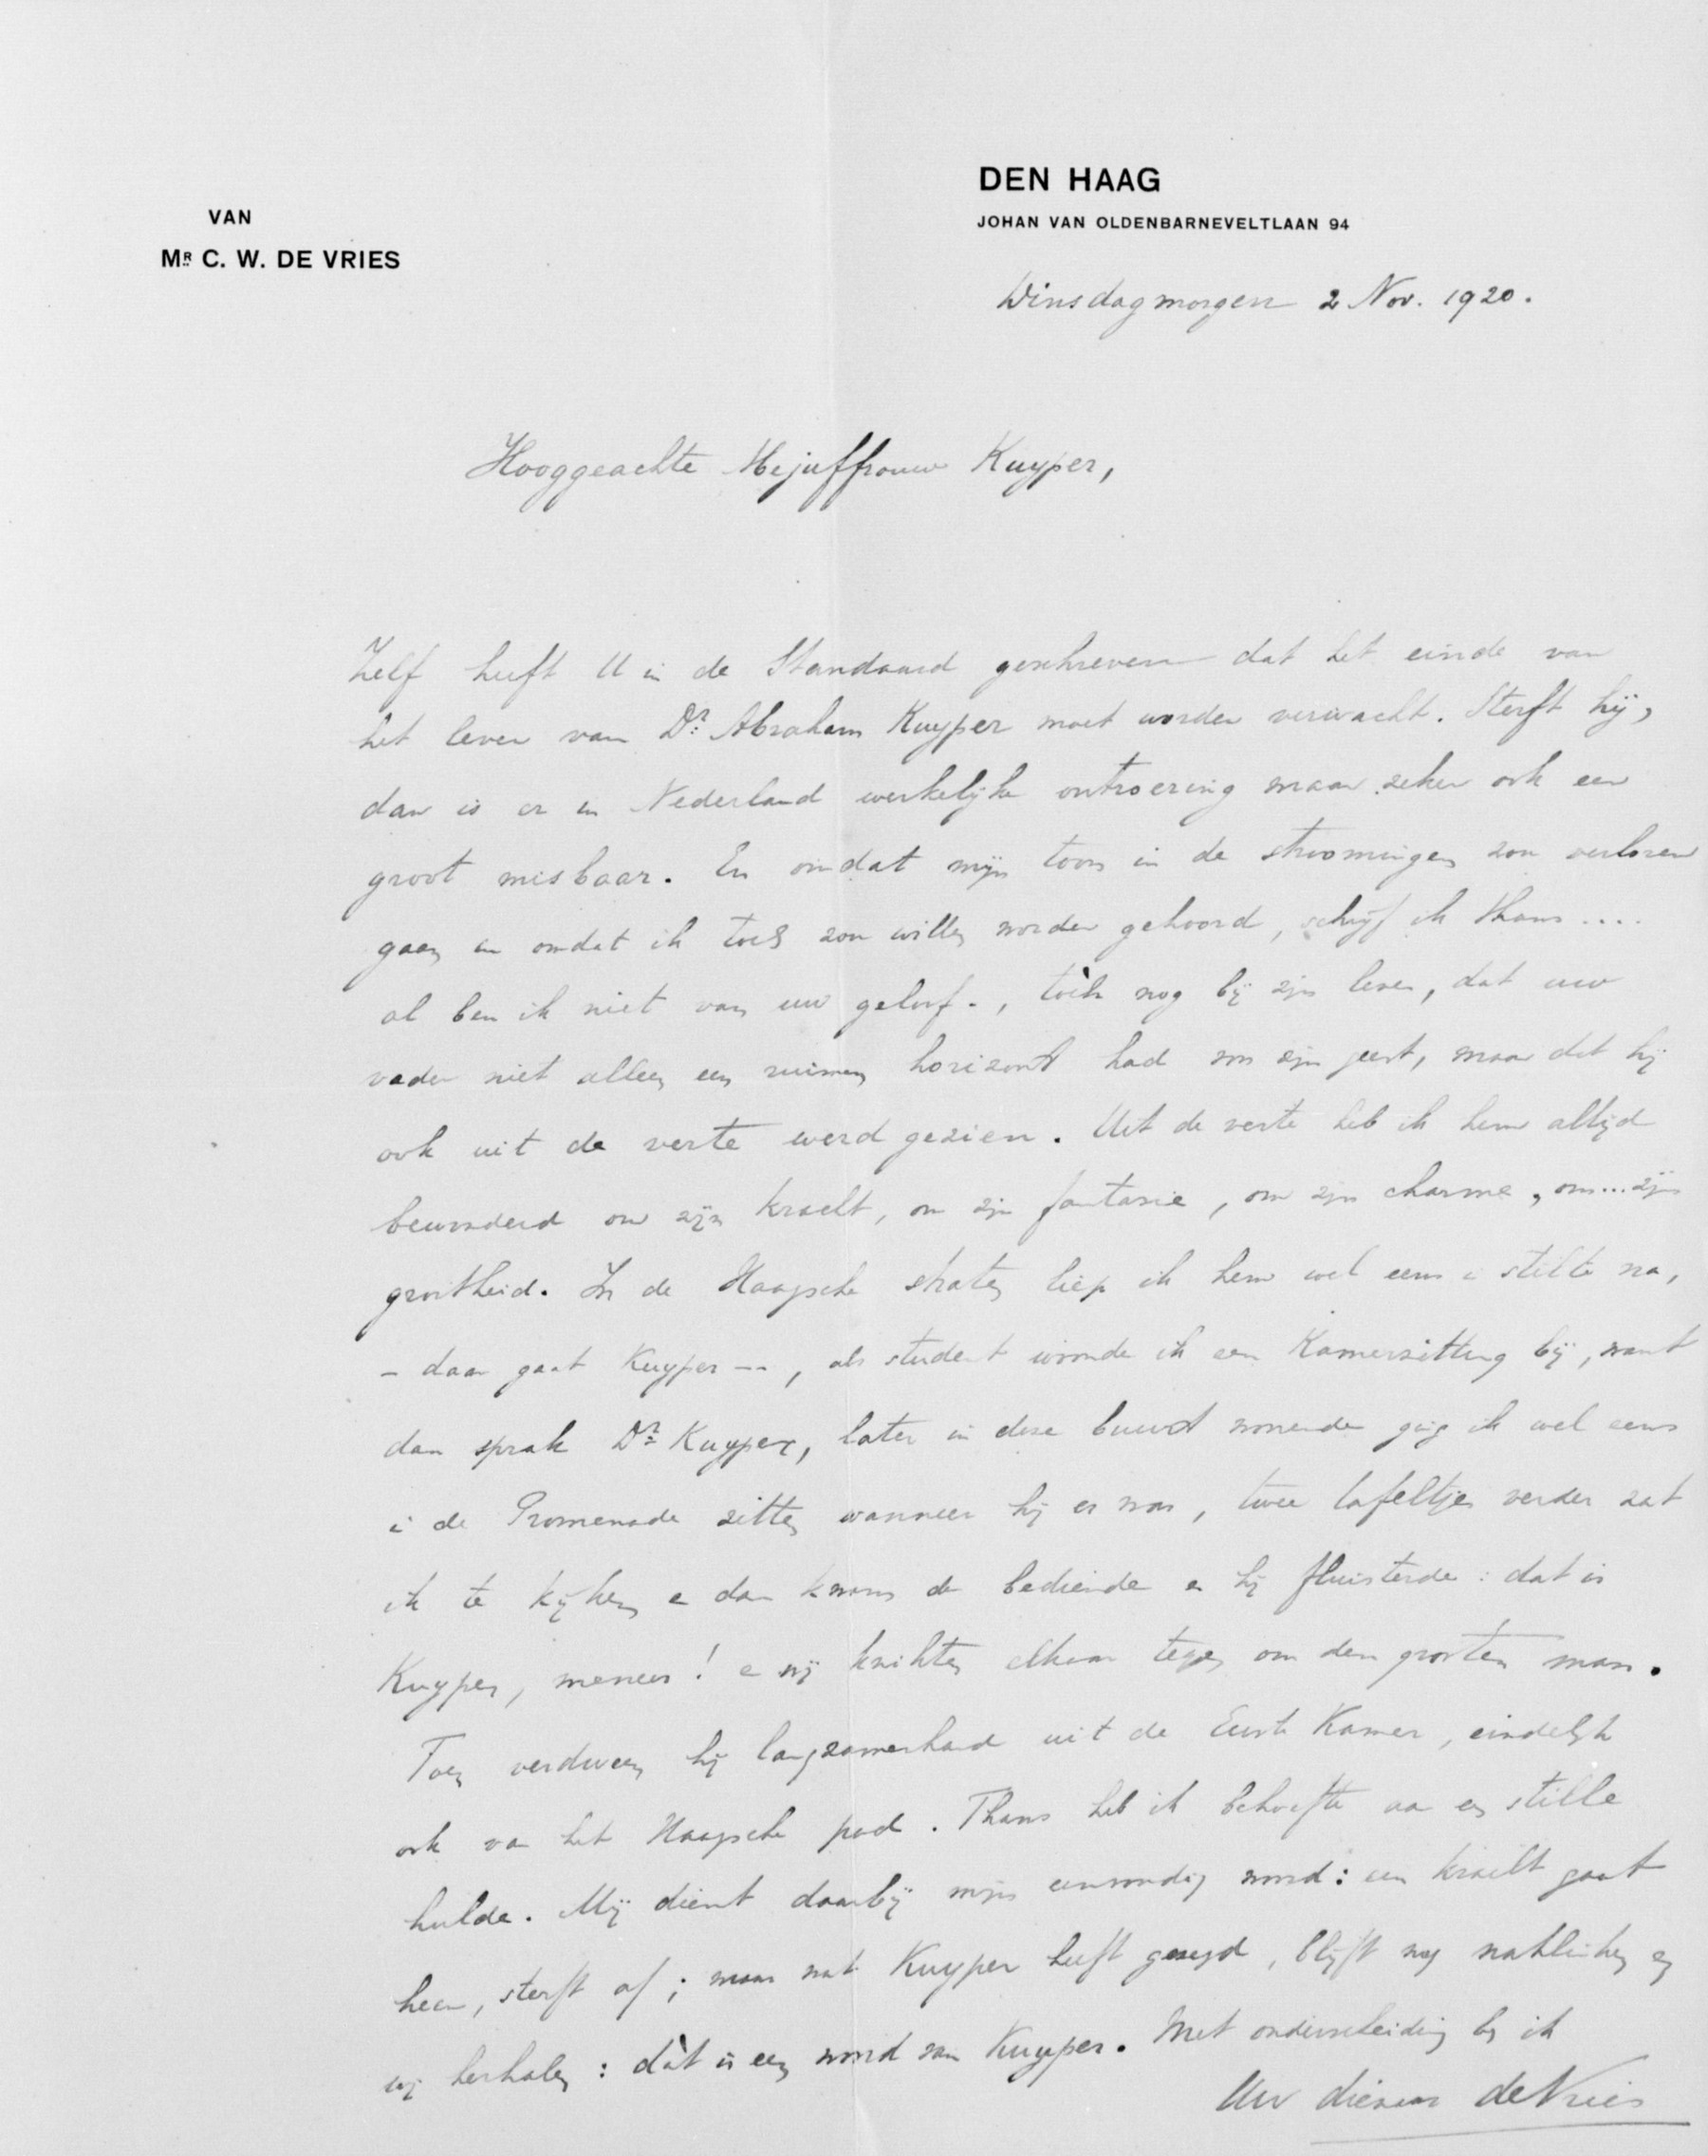 DEN HAAG
JOHAN VAN OLDENBARNEVELTLAAN 94
VAN
MR. C. W. DE VRIES
Dinsdagmorgen 2 Nov. 1920.
Hooggeachte Mejuffrouw Kuyper,
Zelf heeft U in de Standaard geschreven dat het einde van
het leven van Dr. Abraham Kuyper moet worden verwacht. Sterft hij,
dan is er in Nederland werkelijke ontroering maar zeker ook een
groot misbaar. En omdat mijn toon in de stroomingen zou verloren
gaan en omdat ik toch zou willen worden gehoord, schrijf ik thans ....
al ben ik niet van uw geloof -, tòch nog bij zijn leven, dat uw
vader niet alleen een ruimen horizont had om zijn geest, maar dat hij
ook uit de verte werd gezien. Uit de verte heb ik hem altijd
bewonderd om zijn kracht, om zijn fantasie, om zijn charme, om... zijn
grootheid. In de Haagsche straten liep ik hem wel eens in stilte na,
- daar gaat Kuyper --, als student woonde ik een Kamerzitting bij, want
dan sprak Dr. Kuyper, later in deze buurt wonende ging ik wel eens
in de Promenade zitten wanneer hij er was, twee tafeltjes verder zat
ik te kijken en dan kwam de bediende en hij fluisterde : dat is
Kuyper, meneer ! en wij knikten elkaar tegen om den grooten man.
Toen verdween hij langzamerhand uit de Eerste Kamer, eindelijk
ook van het Haagsche pad. Thans heb ik behoefte aan een stille
hulde. Mij dient daarbij mijn eenvoudig woord : een kracht gaat
heen, sterft af ; maar wat Kuyper heeft gezegd, blijft nog naklinken en
wij herhalen : dàt is een woord van Kuyper. Met onderscheiding ben ik
Uw dienaar de Vries